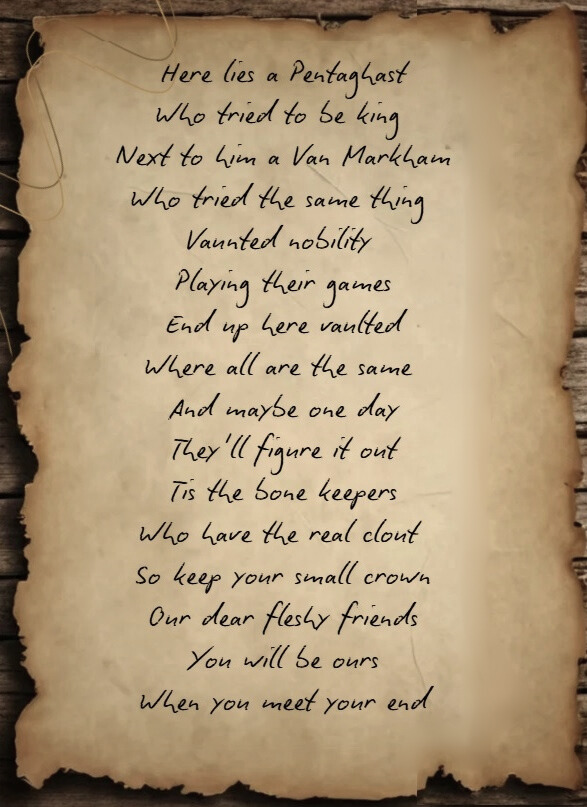 Here lies a Pentaghast
Who tried to be king
Next to him a Van Markham
Who tried the same thing
Vaunted nobility
Playing their games
End up here vaulted
Where all are the same
And maybe one day
They'll figure it out
Tis the bone keepers
Who have the real clout
So keep your small crown
Our dear fleshy friends
You will be ours
When you meet your end